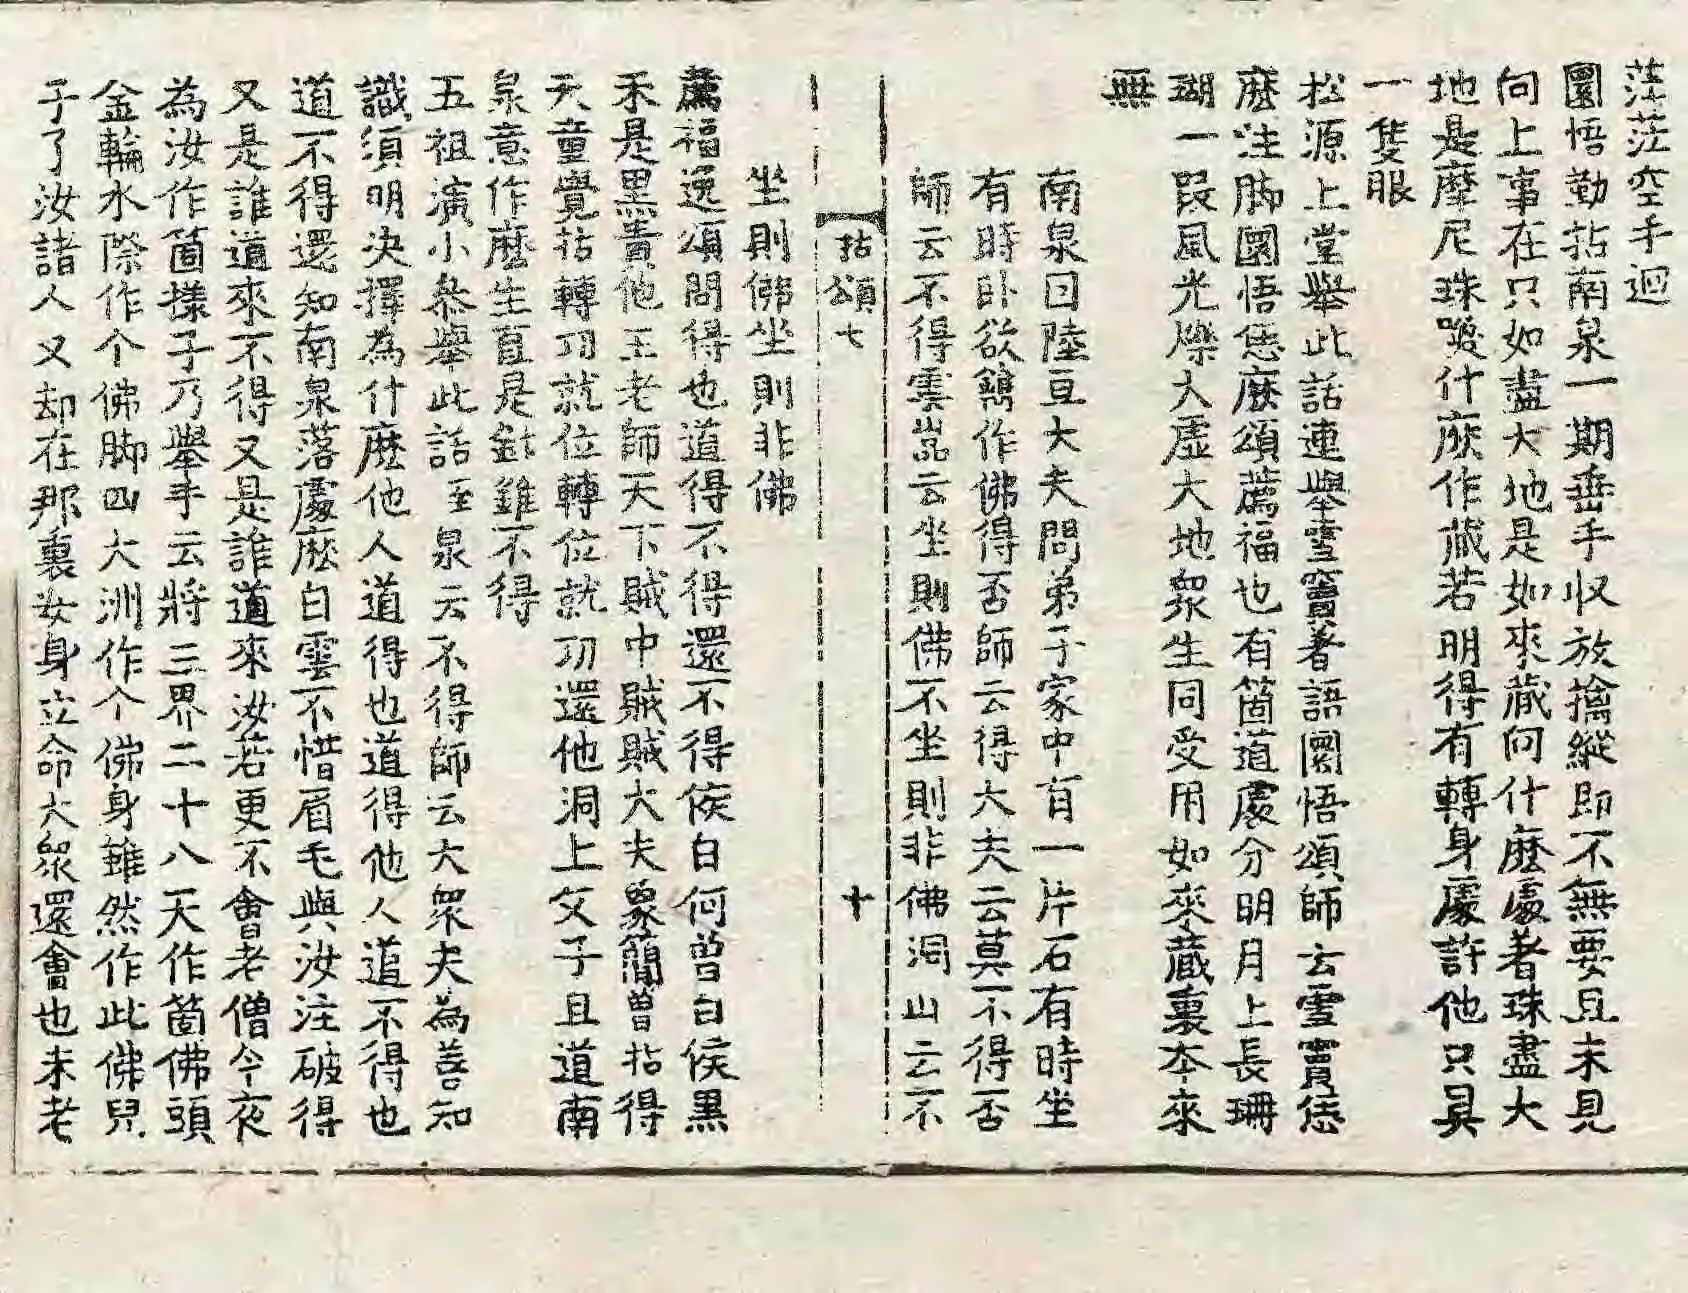 茫茫空手迴
圜悟勤拈南泉一期垂手収放擒縦即不無要且未見
向上事在只如盡大地是如來藏向什麽處著珠盡大
地是摩尼珠喚什麽作藏若明得有轉身處許他只具
一隻眼
松源上堂舉此話連舉雪竇著語圜悟頌師云雪竇恁
麽注脚圜悟恁麽頌薦福也有箇道處分明月上長珊
瑚一段風光爍大虚大地衆生同受用如來藏裏本來
無
南泉因陸亘大夫問弟子家中有一片石有時坐
有時卧欲鐫作佛得否師云得大夫云莫不得否
師云不得雲嵓云坐則佛不坐則非佛洞山云不
拈頌七
十
坐則佛坐則非佛
薦福逸頌問得也道得不得還不得侯白何曾白侯黒
未是黒賣他王老師天下賊中賊賊大夫象簡曽拈得
天童覺拈轉功就位轉位就功還他洞上父子且道南
泉意作麽生直是針錐不得
五祖演小叅舉此話至泉云不得師云大衆夫為善知
識須明决擇為什麽他人道得也道得他人道不得也
道不得還知南泉落處麽白雲不惜眉毛與汝注破得
又是誰道來不得又是誰道來汝若更不會老僧今夜
為汝作箇様子乃舉手云將三界二十八天作箇佛頭
金輪水際作个佛脚四大洲作个佛身雖然作此佛兒
子了汝諸人又却在那裏安身立命大衆還會也未老